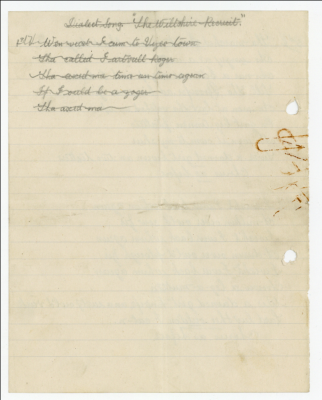 Dialect Song "The Wiltshire Recruit."
Won week I cum to Zizer town
Tha called I artvull Roger
Tha axed ma time an time agen
If Iould be a zoger
Tha axed ma